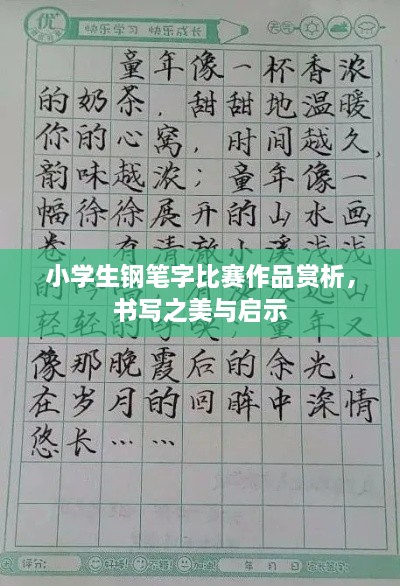 优 快乐学习 快乐成长 天气
童年像一杯香浓
的奶茶，甜甜地温暖
你的心窝，时间越久，
韵味越浓；童年像一
幅徐徐展开的山水画
卷，有清澈小溪浅浅
小学生钢笔字比赛作品赏析，
书写之美与启示
轻轻的 童年又
像那晚霞后的余光，
在岁月的回眸中深情
悠长……
评分: 好棒! 不错! 加油! 年 月 日 家长签字: